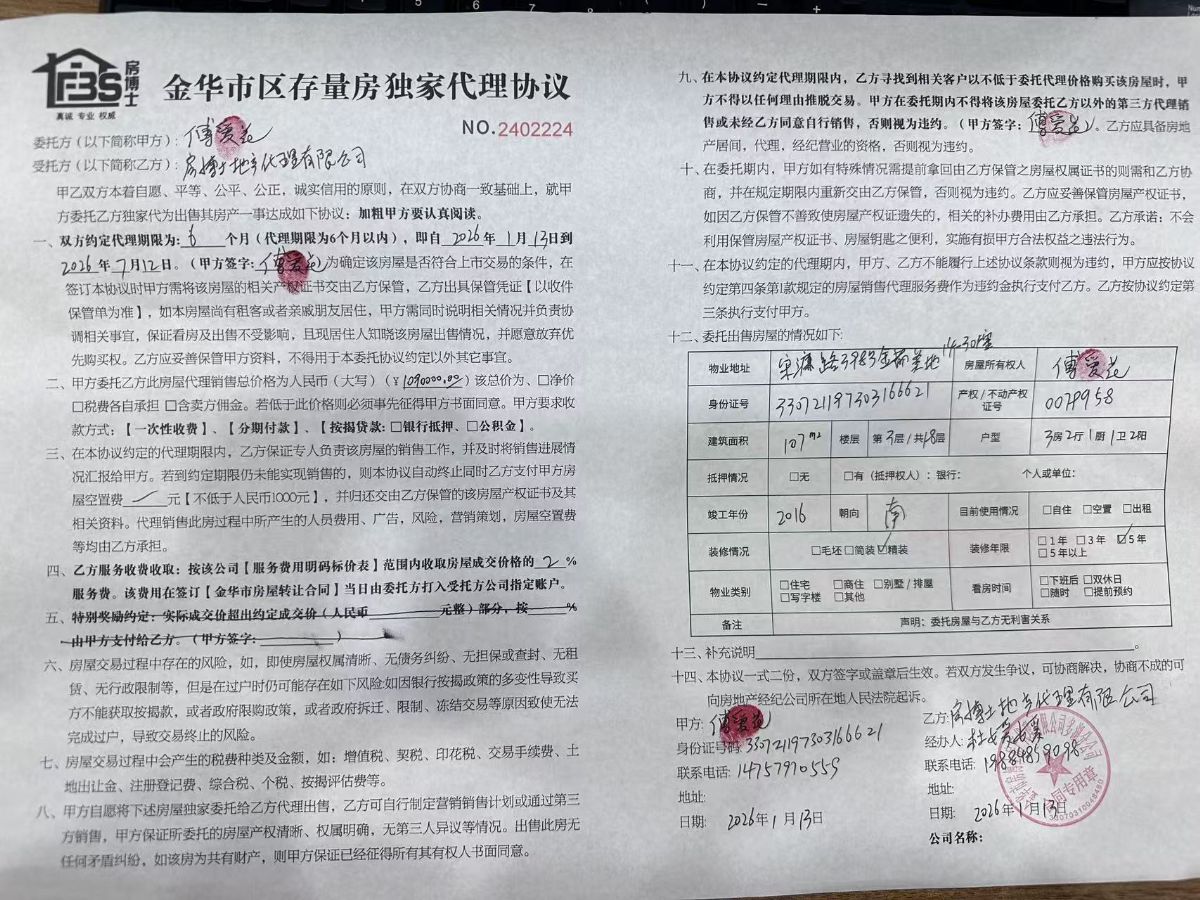 FBS
房博士
真诚 专业 权威
金华市区存量房独家代理协议
NO.2402224
委托方（以下简称甲方）：傅爱花
受托方（以下简称乙方）：房博士地产代理有限公司
甲乙双方本着自愿、平等、公平、公正，诚实信用的原则，在双方协商一致基础上，就甲
方委托乙方独家代为出售其房产一事达成如下协议：加粗甲方要认真阅读。
一、双方约定代理期限为：6个月（代理期限为6个月以内），即自2026年1月13日到
2026年7月12日。（甲方签字：傅爱花）为确定该房屋是否符合上市交易的条件，在
签订本协议时甲方需将该房屋的相关产权证书交由乙方保管，乙方出具保管凭证【以收件
保管单为准】，如本房屋尚有租客或者亲戚朋友居住，甲方需同时说明相关情况并负责协
调相关事宜，保证看房及出售不受影响，且现居住人知晓该房屋出售情况，并愿意放弃优
先购买权。乙方应妥善保管甲方资料，不得用于本委托协议约定以外其它事宜。
二、甲方委托乙方此房屋代理销售总价格为人民币（大写）（¥1090000.00）该总价为、□净价
□税费各自承担 □含卖方佣金。若低于此价格则必须事先征得甲方书面同意。甲方要求收
款方式：【一次性收费】、【分期付款】、【按揭贷款：□银行抵押、□公积金】。
三、在本协议约定的代理期限内，乙方保证专人负责该房屋的销售工作，并及时将销售进展情
况汇报给甲方。若到约定期限仍未能实现销售的，则本协议自动终止同时乙方支付甲方房
屋空置费 元【不低于人民币1000元】，并归还交由乙方保管的该房屋产权证书及其
相关资料。代理销售此房过程中所产生的人员费用、广告，风险，营销策划，房屋空置费
等均由乙方承担。
四、乙方服务收费收取：按该公司【服务费用明码标价表】范围内收取房屋成交价格的2%
服务费。该费用在签订【金华市房屋转让合同】当日由委托方打入受托方公司指定账户。
五、特别奖励约定：实际成交价超出约定成交价（人民币 元整）部分，按 %
由甲方支付给乙方。（甲方签字： ）
六、房屋交易过程中存在的风险，如，即使房屋权属清晰、无债务纠纷、无担保或查封、无租
赁、无行政限制等，但是在过户时仍可能存在如下风险:如因银行按揭政策的多变性导致买
方不能获取按揭款，或者政府限购政策，或者政府拆迁、限制、冻结交易等原因致使无法
完成过户，导致交易终止的风险。
七、房屋交易过程中会产生的税费种类及金额，如：增值税、契税、印花税、交易手续费、土
地出让金、注册登记费、综合税、个税、按揭评估费等。
八、甲方自愿将下述房屋独家委托给乙方代理出售，乙方可自行制定营销销售计划或通过第三
方销售，甲方保证所委托的房屋产权清晰、权属明确，无第三人异议等情况。出售此房无
任何矛盾纠纷，如该房为共有财产，则甲方保证已经征得所有其有权人书面同意。
九、在本协议约定代理期限内，乙方寻找到相关客户以不低于委托代理价格购买该房屋时，甲
方不得以任何理由推脱交易。甲方在委托期内不得将该房屋委托乙方以外的第三方代理销
售或未经乙方同意自行销售，否则视为违约。（甲方签字：傅爱花）。乙方应具备房地
产居间，代理，经纪营业的资格，否则视为违约。
十、在委托期内，甲方如有特殊情况需提前拿回由乙方保管之房屋权属证书的则需和乙方协
商，并在规定期限内重新交由乙方保管，否则视为违约。乙方应妥善保管房屋产权证书，
如因乙方保管不善致使房屋产权证遗失的，相关的补办费用由乙方承担。乙方承诺：不会
利用保管房屋产权证书、房屋钥匙之便利，实施有损甲方合法权益之违法行为。
十一、在本协议约定的代理期内，甲方、乙方不能履行上述协议条款则视为违约，甲方应按协议
约定第四条第1款规定的房屋销售代理服务费作为违约金执行支付乙方。乙方按协议约定第
三条执行支付甲方。
十二、委托出售房屋的情况如下：
物业地址 宋濂路398弄金都美地14-302室 房屋所有权人 傅爱花
身份证号 330721197303166621 产权/不动产权证号 0078958
建筑面积 107m² 楼层 第3层/共18层 户型 3房2厅1厨1卫2阳
抵押情况 □无 □有（抵押权人）：银行： 个人或单位：
竣工年份 2016 朝向 南 目前使用情况 □自住 □空置 □出租
装修情况 □毛坯 □简装 ☑精装 装修年限 □1年 □3年 ☑5年 □5年以上
物业类别 □住宅 □商住 □别墅/排屋 □写字楼 □其他 看房时间 □下班后 □双休日 □随时 □提前预约
备注 声明：委托房屋与乙方无利害关系
十三、补充说明
十四、本协议一式二份，双方签字或盖章后生效。若双方发生争议，可协商解决，协商不成的可
向房地产经纪公司所在地人民法院起诉。
甲方：傅爱花
身份证号码：330721197303166621
联系电话：14757970559
地址：
日期：2026年1月13日
乙方：房博士地产代理有限公司
经办人：
联系电话：19884859098
地址：
日期：2026年1月13日
公司名称：
合同专用章